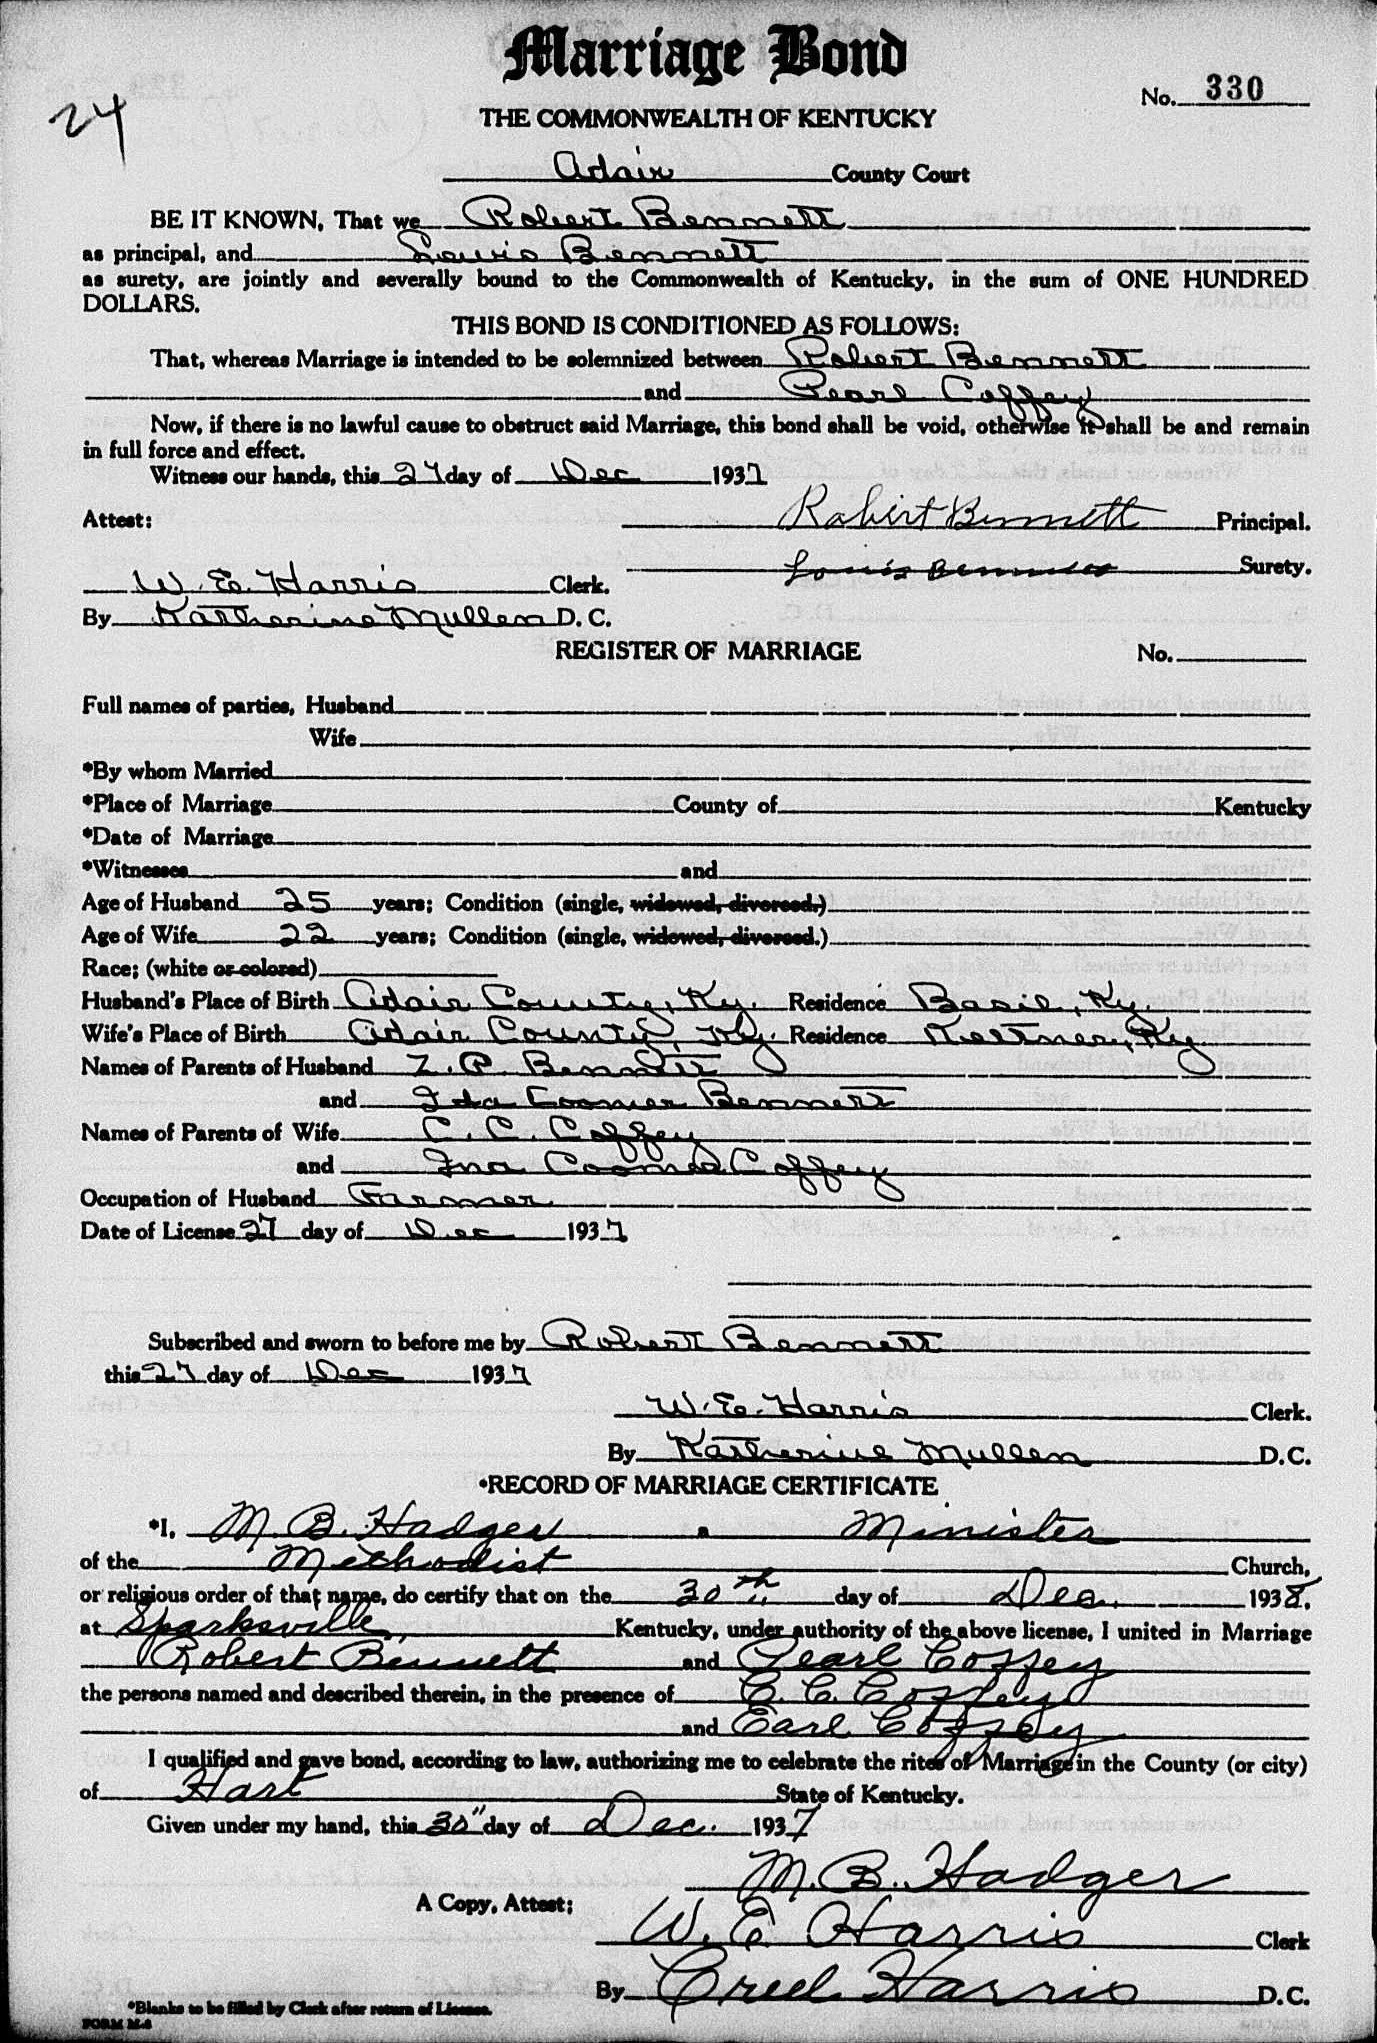 Marriage Bond
No. 330
24
THE COMMONWEALTH OF KENTUCKY
Adair County Court
BE IT KNOWN, That we Robert Bennett
as principal, and Louis Bennett
as surety, are jointly and severally bound to the Commonwealth of Kentucky, in the sum of ONE HUNDRED
DOLLARS.
THIS BOND IS CONDITIONED AS FOLLOWS:
That, whereas Marriage is intended to be solemnized between Robert Bennett
and Pearl Coffey
Now, if there is no lawful cause to obstruct said Marriage, this bond shall be void, otherwise it shall be and remain
in full force and effect.
Witness our hands, this 27 day of Dec 1937
Attest: Robert Bennett Principal.
Louis Bennett Surety.
W. E. Harris Clerk.
By Katherine Mullen D. C.
REGISTER OF MARRIAGE No.
Full names of parties, Husband
Wife
*By whom Married
*Place of Marriage County of Kentucky
*Date of Marriage
*Witnesses and
Age of Husband 25 years; Condition (single, widowed, divorced.)
Age of Wife 22 years; Condition (single, widowed, divorced.)
Race; (white or colored)
Husband's Place of Birth Adair County, Ky. Residence Basil, Ky.
Wife's Place of Birth Adair County, Ky. Residence Keltner, Ky
Names of Parents of Husband Z. P. Bennett
and Ida Coomer Bennett
Names of Parents of Wife C. C. Coffey
and Ina Coomer Coffey
Occupation of Husband Farmer
Date of License 27 day of Dec 1937
Subscribed and sworn to before me by Robert Bennett
this 27 day of Dec 1937
W. E. Harris Clerk.
By Katherine Mullen D. C.
*RECORD OF MARRIAGE CERTIFICATE
*I, M. B. Hadger a Minister
of the Methodist Church,
or religious order of that name, do certify that on the 30th day of Dec. 1938.
at Sparksville, Kentucky, under authority of the above license, I united in Marriage
Robert Bennett and Pearl Coffey
the persons named and described therein, in the presence of C. C. Coffey
and Earl Coffey
I qualified and gave bond, according to law, authorizing me to celebrate the rites of Marriage in the County (or city)
of Hart State of Kentucky.
Given under my hand, this 30" day of Dec. 1937
M. B. Hadger
A Copy, Attest;
W. E. Harris Clerk
By Creel Harris D. C.
*Blanks to be filled by Clerk after return of License.
FORM M-8